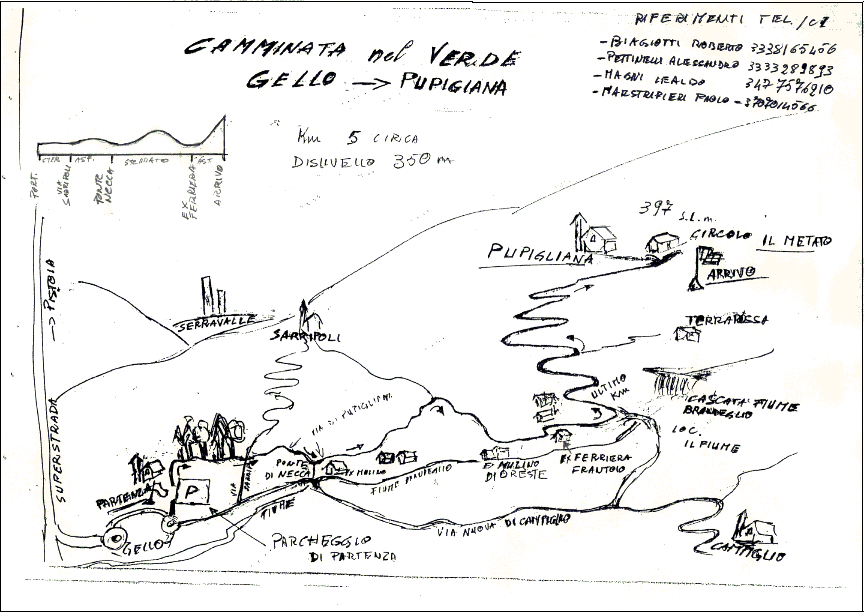 RIFERIMENTI TEL/
CAMMINATA nel VERDE
GELLO → PUPIGIANA
- BIAGIOTTI ROBERTO 3338165456
- PETTINELLI ALESSANDRO 3333289893
- MAGNI LEALDO 3477576210
- MAESTRIPIERI PAOLO -
Km 5 CIRCA
DISLIVELLO 350 m
ASF.
STERRATO
PART.
VIA SARRIPOLI
PONTE NECCA
EX FERRIERA
ARRIVO
397 s.l.m.
CIRCOLO IL METATO
PUPIGLIANA
ARRIVO
→ PISTOIA
SERRAVALLE
SARRIPOLI
TERRAROSSA
ULTIMO KM
CASCATA FIUME
BRANDEGLIO
LOC.
IL FIUME
VIA DI PUPIGLIANA
SUPERSTRADA
PARTENZA
P
VIA
PONTE
DI NECCA
EX MULINO
FIUME
EX MULINO
DI ORESTE
EX FERRIERA
FRANTOIO
FIUME
VIA NUOVA DI CAMPIGLIO
GELLO
PARCHEGGIO
DI PARTENZA
CAMPIGLIO